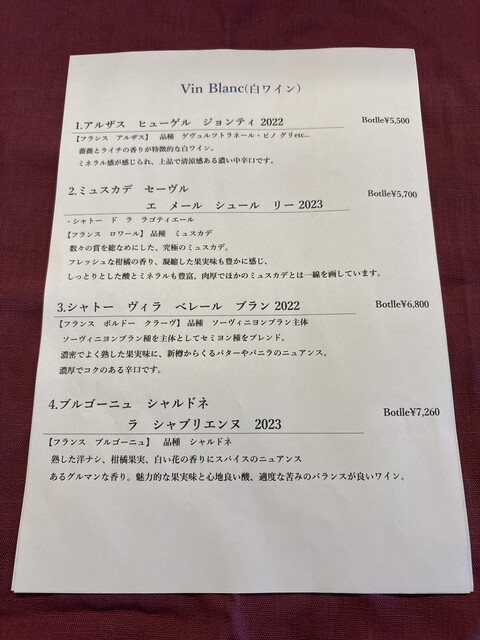 Vin Blanc(白ワイン)
1.アルザス　ヒューゲル　ジョンティ 2022　Botlle¥5,500
【フランス　アルザス】　品種　ゲヴュルツトラネール・ピノ グリetc...
薔薇とライチの香りが特徴的な白ワイン。
ミネラル感が感じられ、上品で清涼感ある濃い中辛口です。
2.ミュスカデ　セーヴル　Botlle¥5,700
エ　メール　シュール　リー 2023
・シャトー　ド　ラ　ラゴティエール
【フランス　ロワール】品種　ミュスカデ
数々の賞を総なめにした、究極のミュスカデ。
フレッシュな柑橘の香り、凝縮した果実味も豊かに感じ、
しっとりとした酸とミネラルも豊富。肉厚でほかのミュスカデとは一線を画しています。
3.シャトー　ヴィラ　ベレール　ブラン 2022　Botlle¥6,800
【フランス　ボルドー　クラーヴ】品種　ソーヴィニヨンブラン主体
ソーヴィニヨンブラン種を主体としてセミヨン種をブレンド。
濃密でよく熟した果実味に、新樽からくるバターやバニラのニュアンス。
濃厚でコクのある辛口です。
4.ブルゴーニュ　シャルドネ　Botlle¥7,260
ラ　シャブリエンヌ　2023
【フランス　ブルゴーニュ】　品種　シャルドネ
熟した洋ナシ、柑橘果実、白い花の香りにスパイスのニュアンス
あるグルマンな香り。魅力的な果実味と心地良い酸、適度な苦みのバランスが良いワイン。